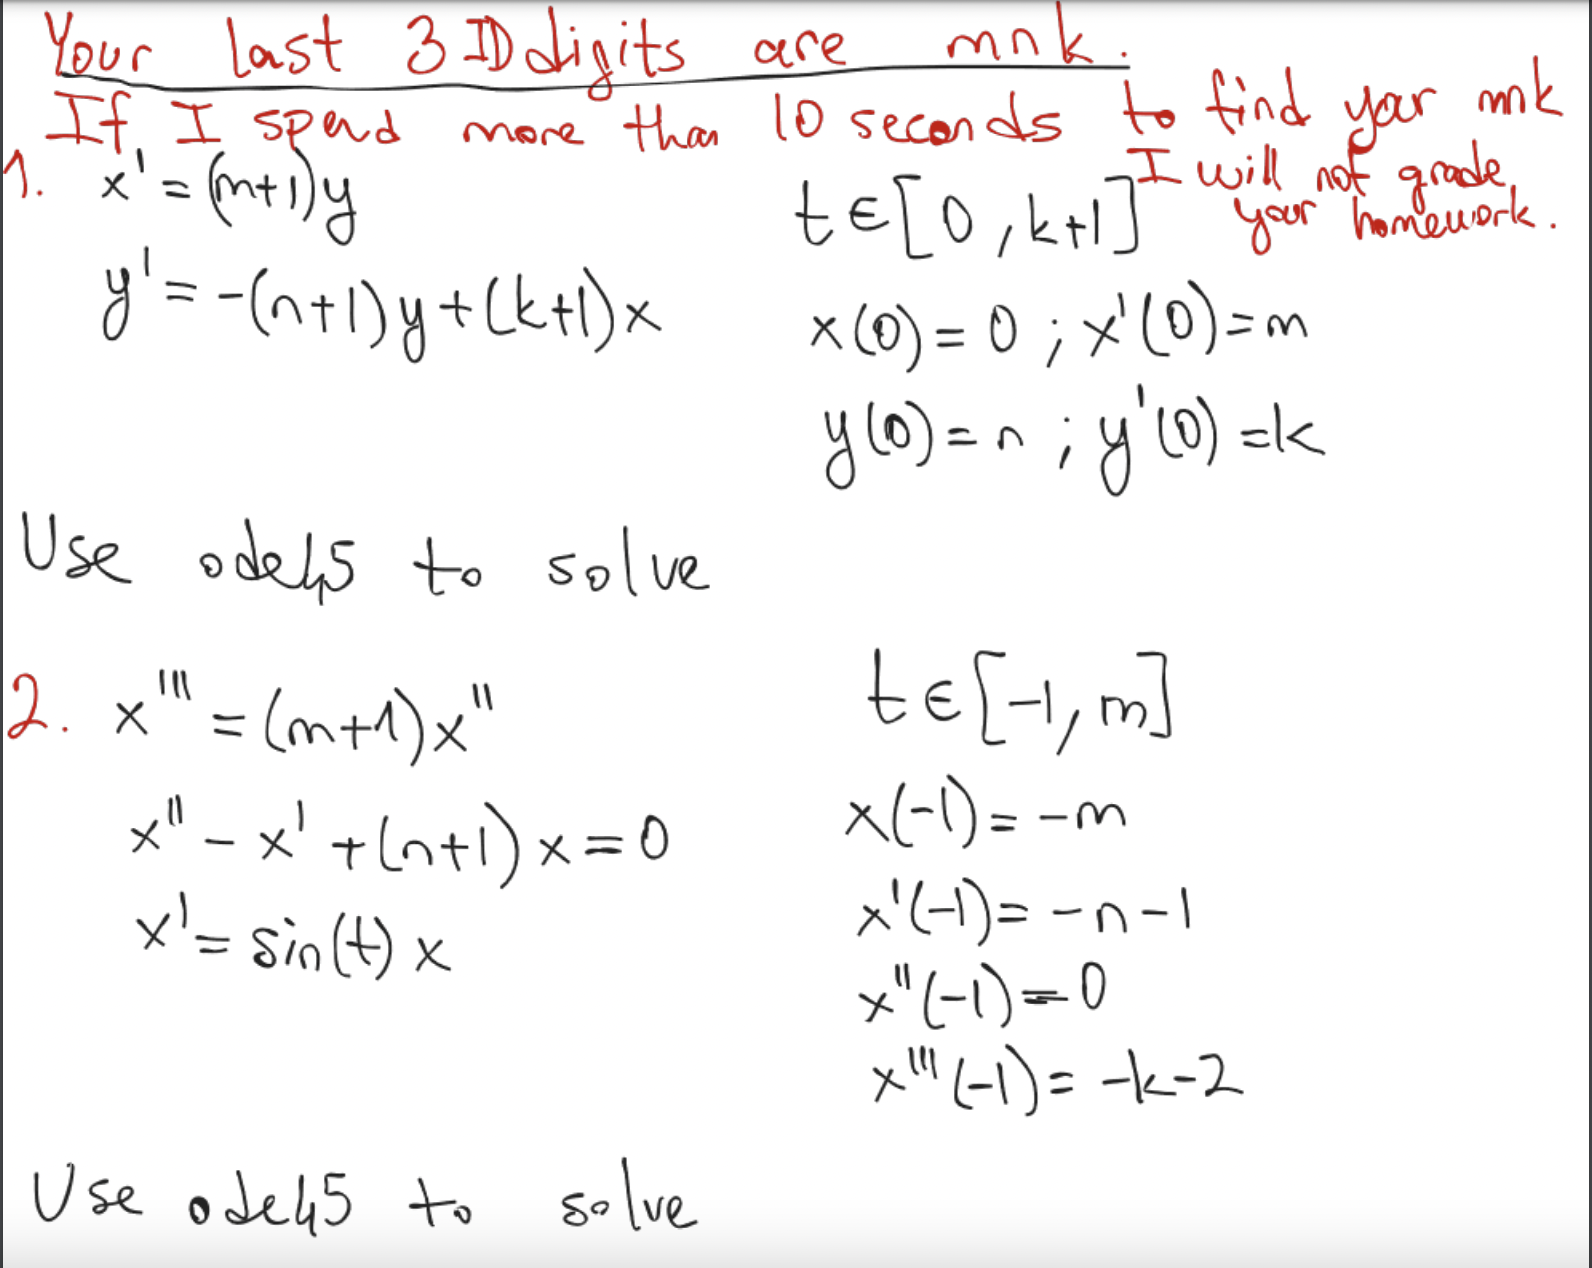 Your last 3 ID digits are mnk.
If I spend more than 10 seconds to find your mnk
I will not grade
your homework.
1. x' = (m+1)y
t ∈ [0, k+1]
y' = -(n+1)y + (k+1)x
x(0) = 0 ; x'(0) = m
y(0) = n ; y'(0) = k
Use ode45 to solve
2. x''' = (m+1)x''
t ∈ [-1, m]
x'' - x' + (n+1)x = 0
x(-1) = -m
x' = sin(t) x
x'(-1) = -n-1
x''(-1) = 0
x'''(-1) = -k-2
Use ode45 to solve